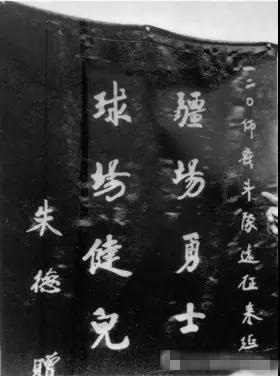 一二〇师战斗队远征来延
疆场勇士
球场健儿
朱德赠